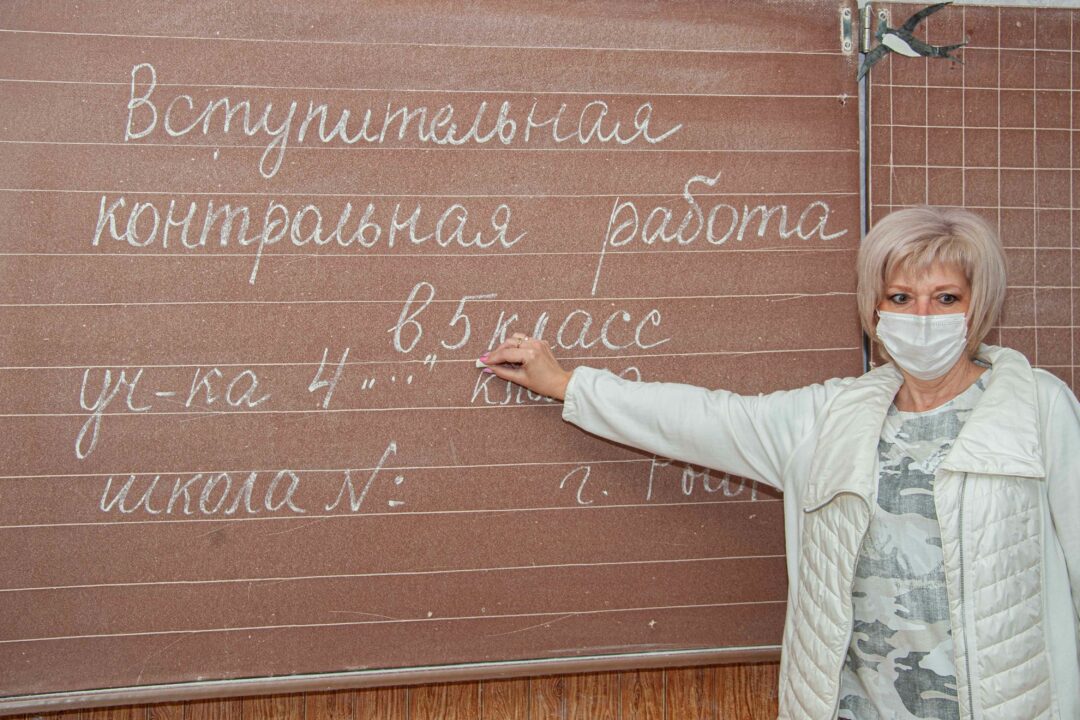 Вступительная
контрольная работа
в 5 класс
уч-ка 4 "...."
школа №: г.